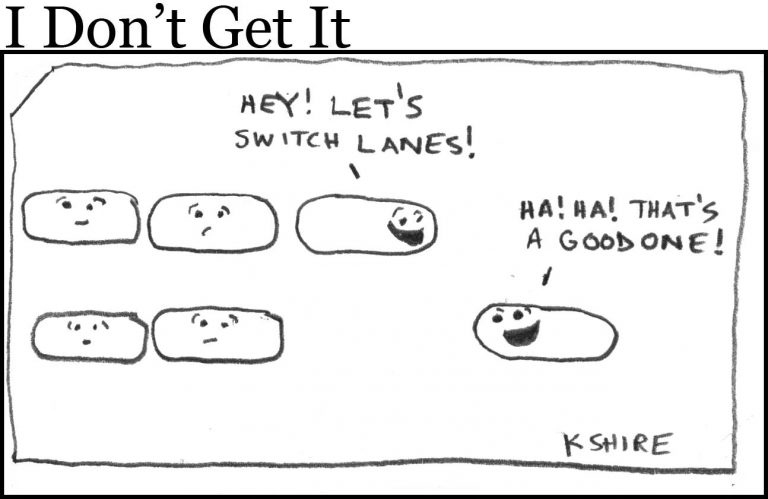 I Don't Get It
HEY! LET'S
SWITCH LANES!
HA! HA! THAT'S
A GOOD ONE!
K SHIRE